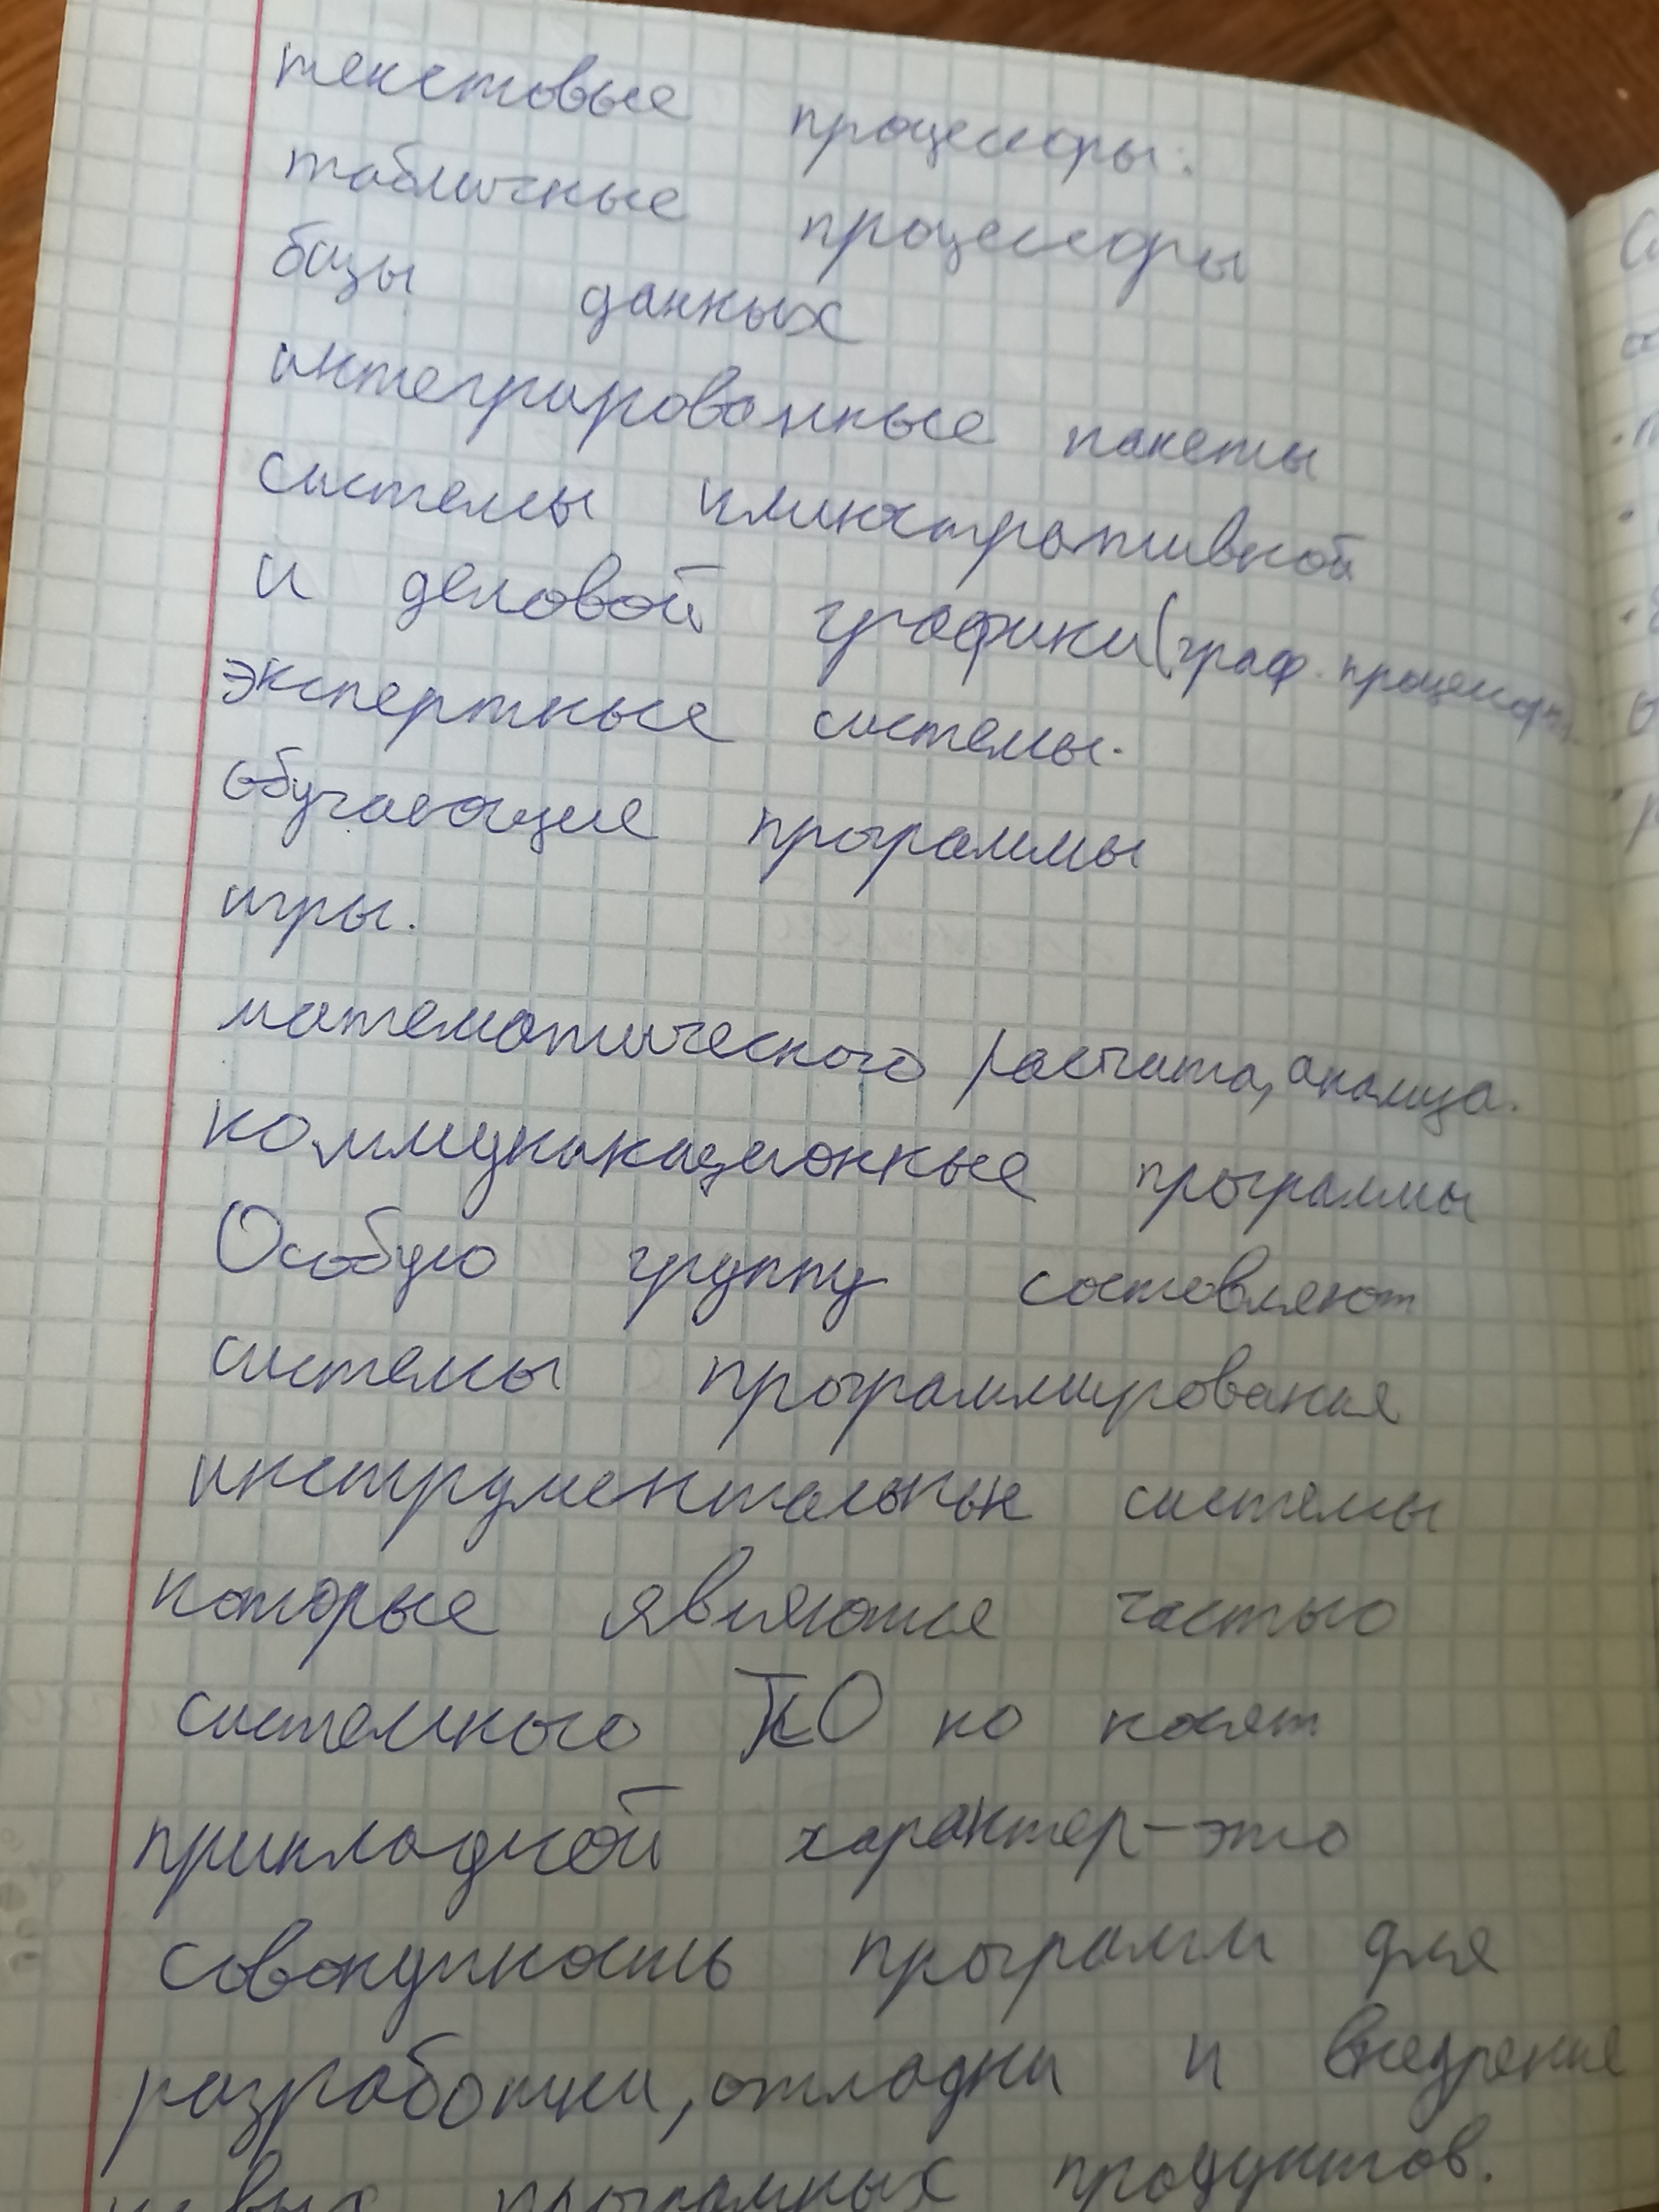 текстовые процессоры:
табличные процессоры
базы данных
интегрированные пакеты
системы иллюстративной
и деловой графики (граф. процессоры.
экспертные системы.
обучающие программы
игры.
математического расчита, анализа.
коммуникационные программы
Особую группу составляют
системы программирования
инструментальные системы
которые являются частью
системного ПО но носят
прикладной характер - это
совокупность программ для
разработки, отладки и внедрение
новых программных продуктов.